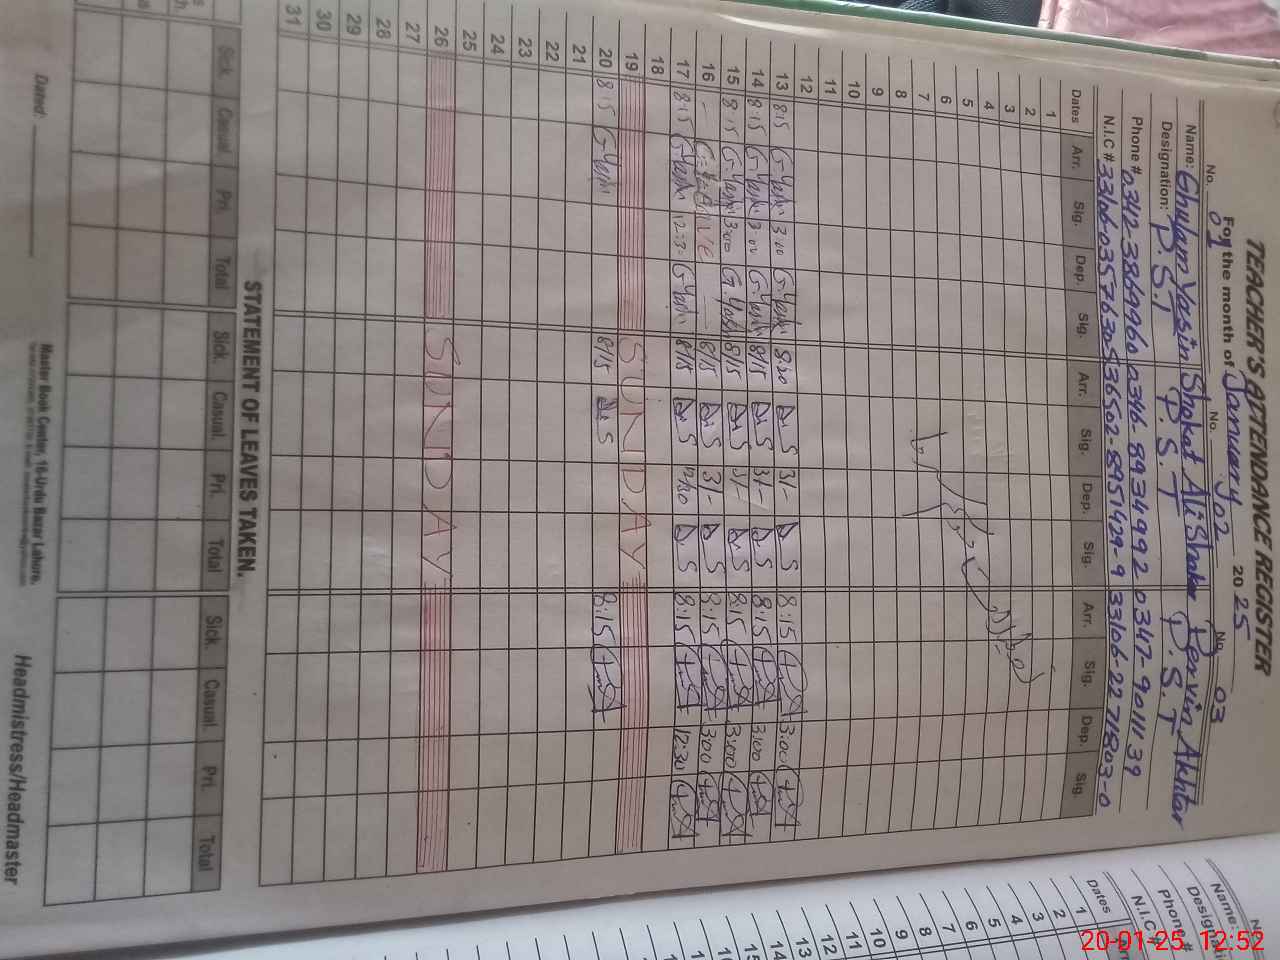 TEACHER'S ATTENDANCE REGISTER
For the month of January 2025
No. 01 No. 02 No. 03
Name: Ghulam Yasin Shokat Ali Shaker Pervin Akhtar
Designation: P.S.T P.S.T P.S.T
Phone # 0342-3869960 0346-8934992 0347-9011139
N.I.C #
Dates Arr. Sig. Dep. Sig. Arr. Sig. Dep. Sig. Arr. Sig. Dep. Sig.
1
2
3
4
5
6
7
8
9
10
11
12
13 8:15 G.Yasin 3:00 G.Yasin 8:20 3/- 8:15 3:00
14 8:15 G.Yasin 3:00 G.Yasin 8/15 3/- 8:15 3:00
15 8:15 G.Yasin 3:00 G.Yasin 8/15 3/- 8:15 3:00
16 LEAVE 8/15 3/- 8:15 3:00
17 8:15 G.Yasin 12:30 G.Yasin 8/15 8:15 12:30
18
19 SUNDAY
20 8:15 G.Yasin 8/15 8:15
21
22
23
24
25
26 SUNDAY
27
28
29
30
31
STATEMENT OF LEAVES TAKEN.
Sick. Casual. Pri. Total Sick. Casual. Pri. Total Sick. Casual. Pri. Total
Dated:
Master Book Center, 16-Urdu Bazar Lahore.
Headmistress/Headmaster
Name
Designati
Phone #
N.I.C #
Dates
1
2
3
4
5
6
7
8
9
10
11
12
13
14
20-01-25 12:52